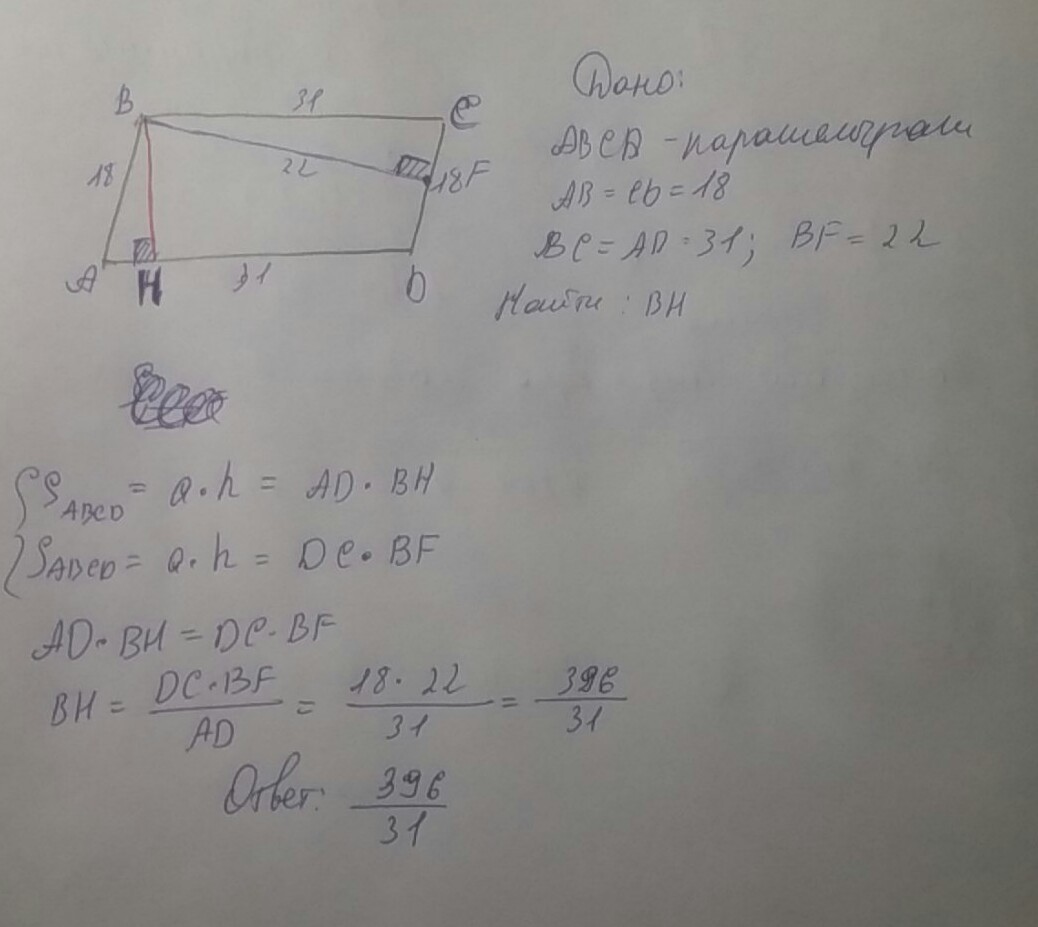 B 31 C
18 22 18 F
A H 31 D
Дано:
ABCD - параллелограмм
AB = CD = 18
BC = AD = 31; BF = 22
Найти: BH
S ABCD = a · h = AD · BH
S ABCD = a · h = DC · BF
AD · BH = DC · BF
BH = DC · BF / AD = 18 · 22 / 31 = 396 / 31
Ответ: 396 / 31